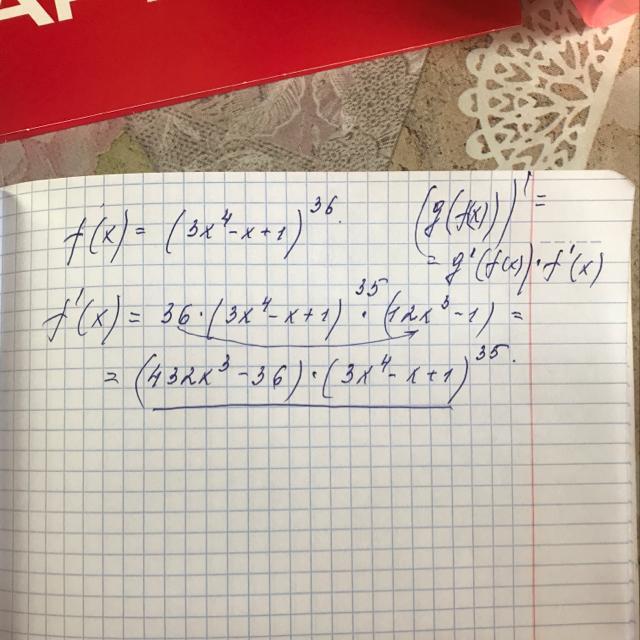 f(x) = (3x⁴ - x + 1)³⁶.
(g(f(x)))' =
= g'(f(x)) · f'(x)
f'(x) = 36 · (3x⁴ - x + 1)³⁵ · (12x³ - 1) =
= (432x³ - 36) · (3x⁴ - x + 1)³⁵.